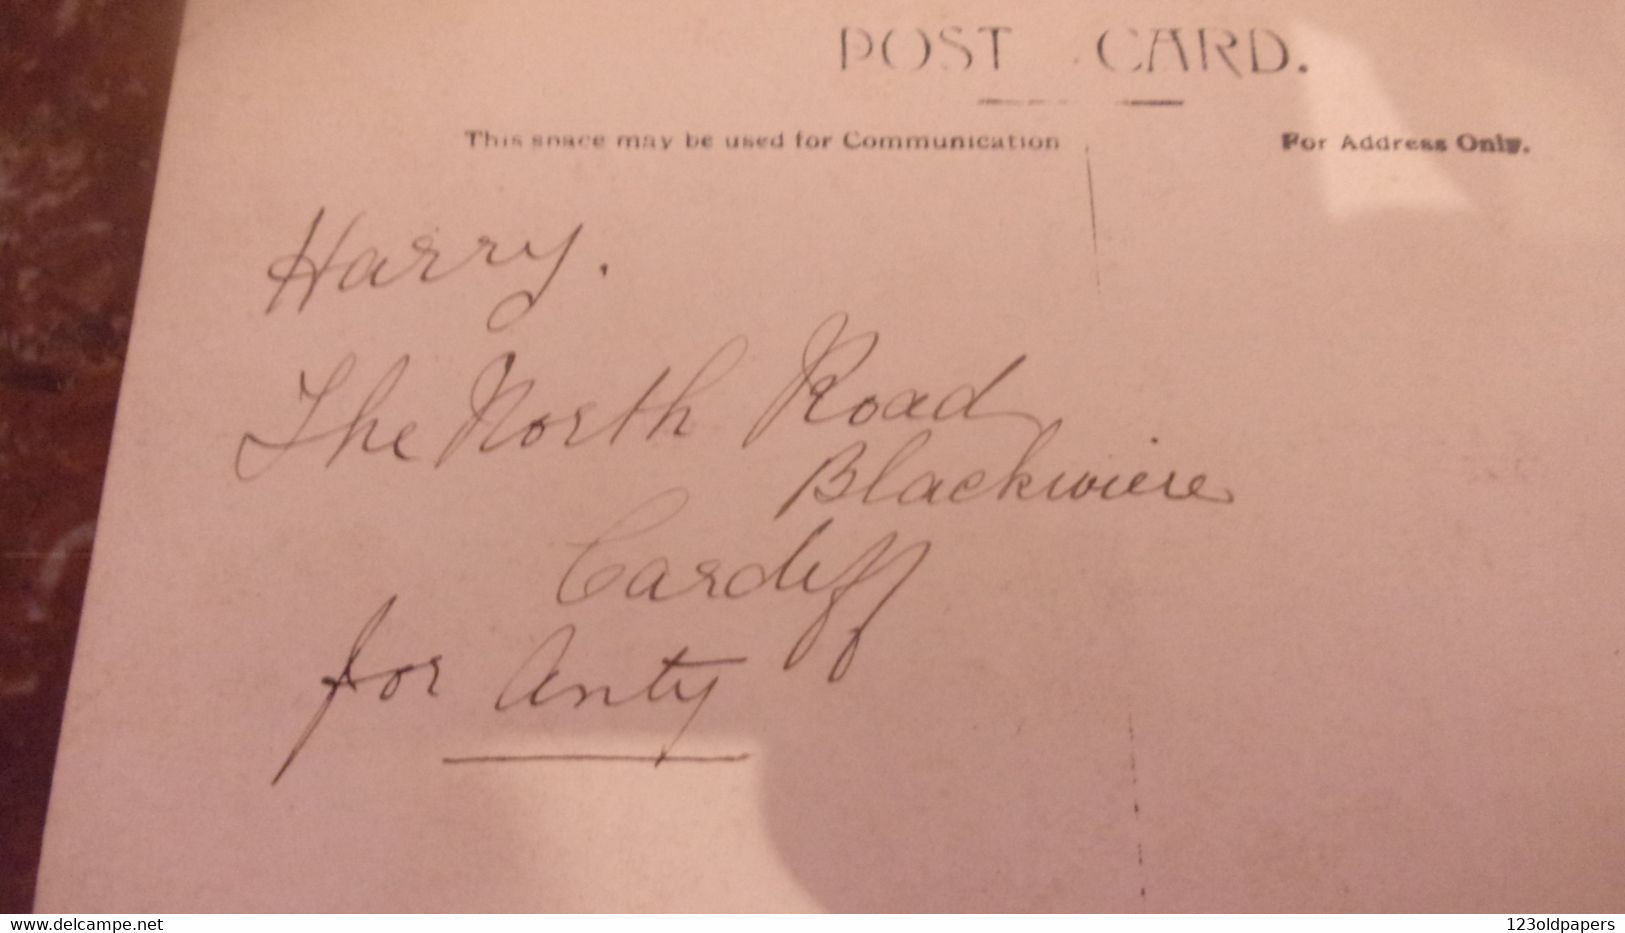 POST CARD.
This space may be used for Communication
For Address Only.
Harry.
The North Road
Blackwiere
Cardiff
for Anty
delcampe.net
123oldpapers